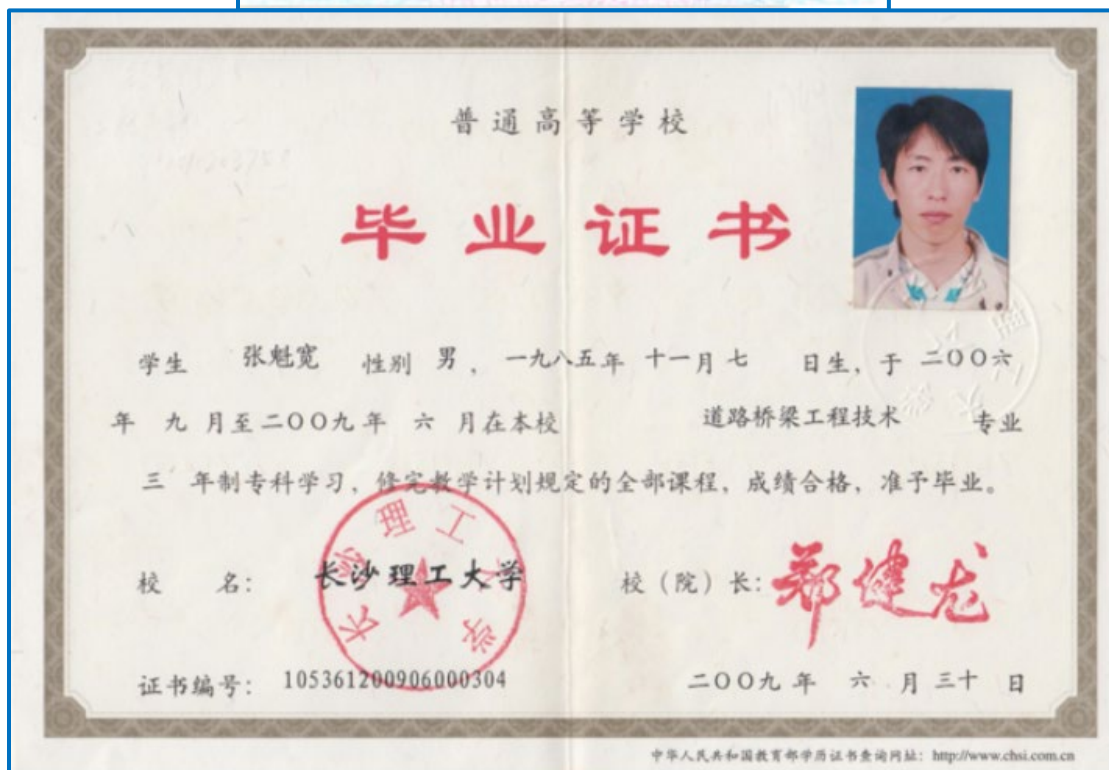 普通高等学校
毕业证书
学生 张魁宽 性别 男，一九八五年 十一月 七 日生，于 二〇〇六
年 九 月至 二〇〇九 年 六 月在本校 道路桥梁工程技术 专业
三 年制专科学习，修完教学计划规定的全部课程，成绩合格，准予毕业。
校 名： 长沙理工大学 校（院）长：郑健龙
长沙理工大学
证书编号： 105361200906000304 二〇〇九 年 六 月 三十 日
中华人民共和国教育部学历证书查询网址：http://www.chsi.com.cn